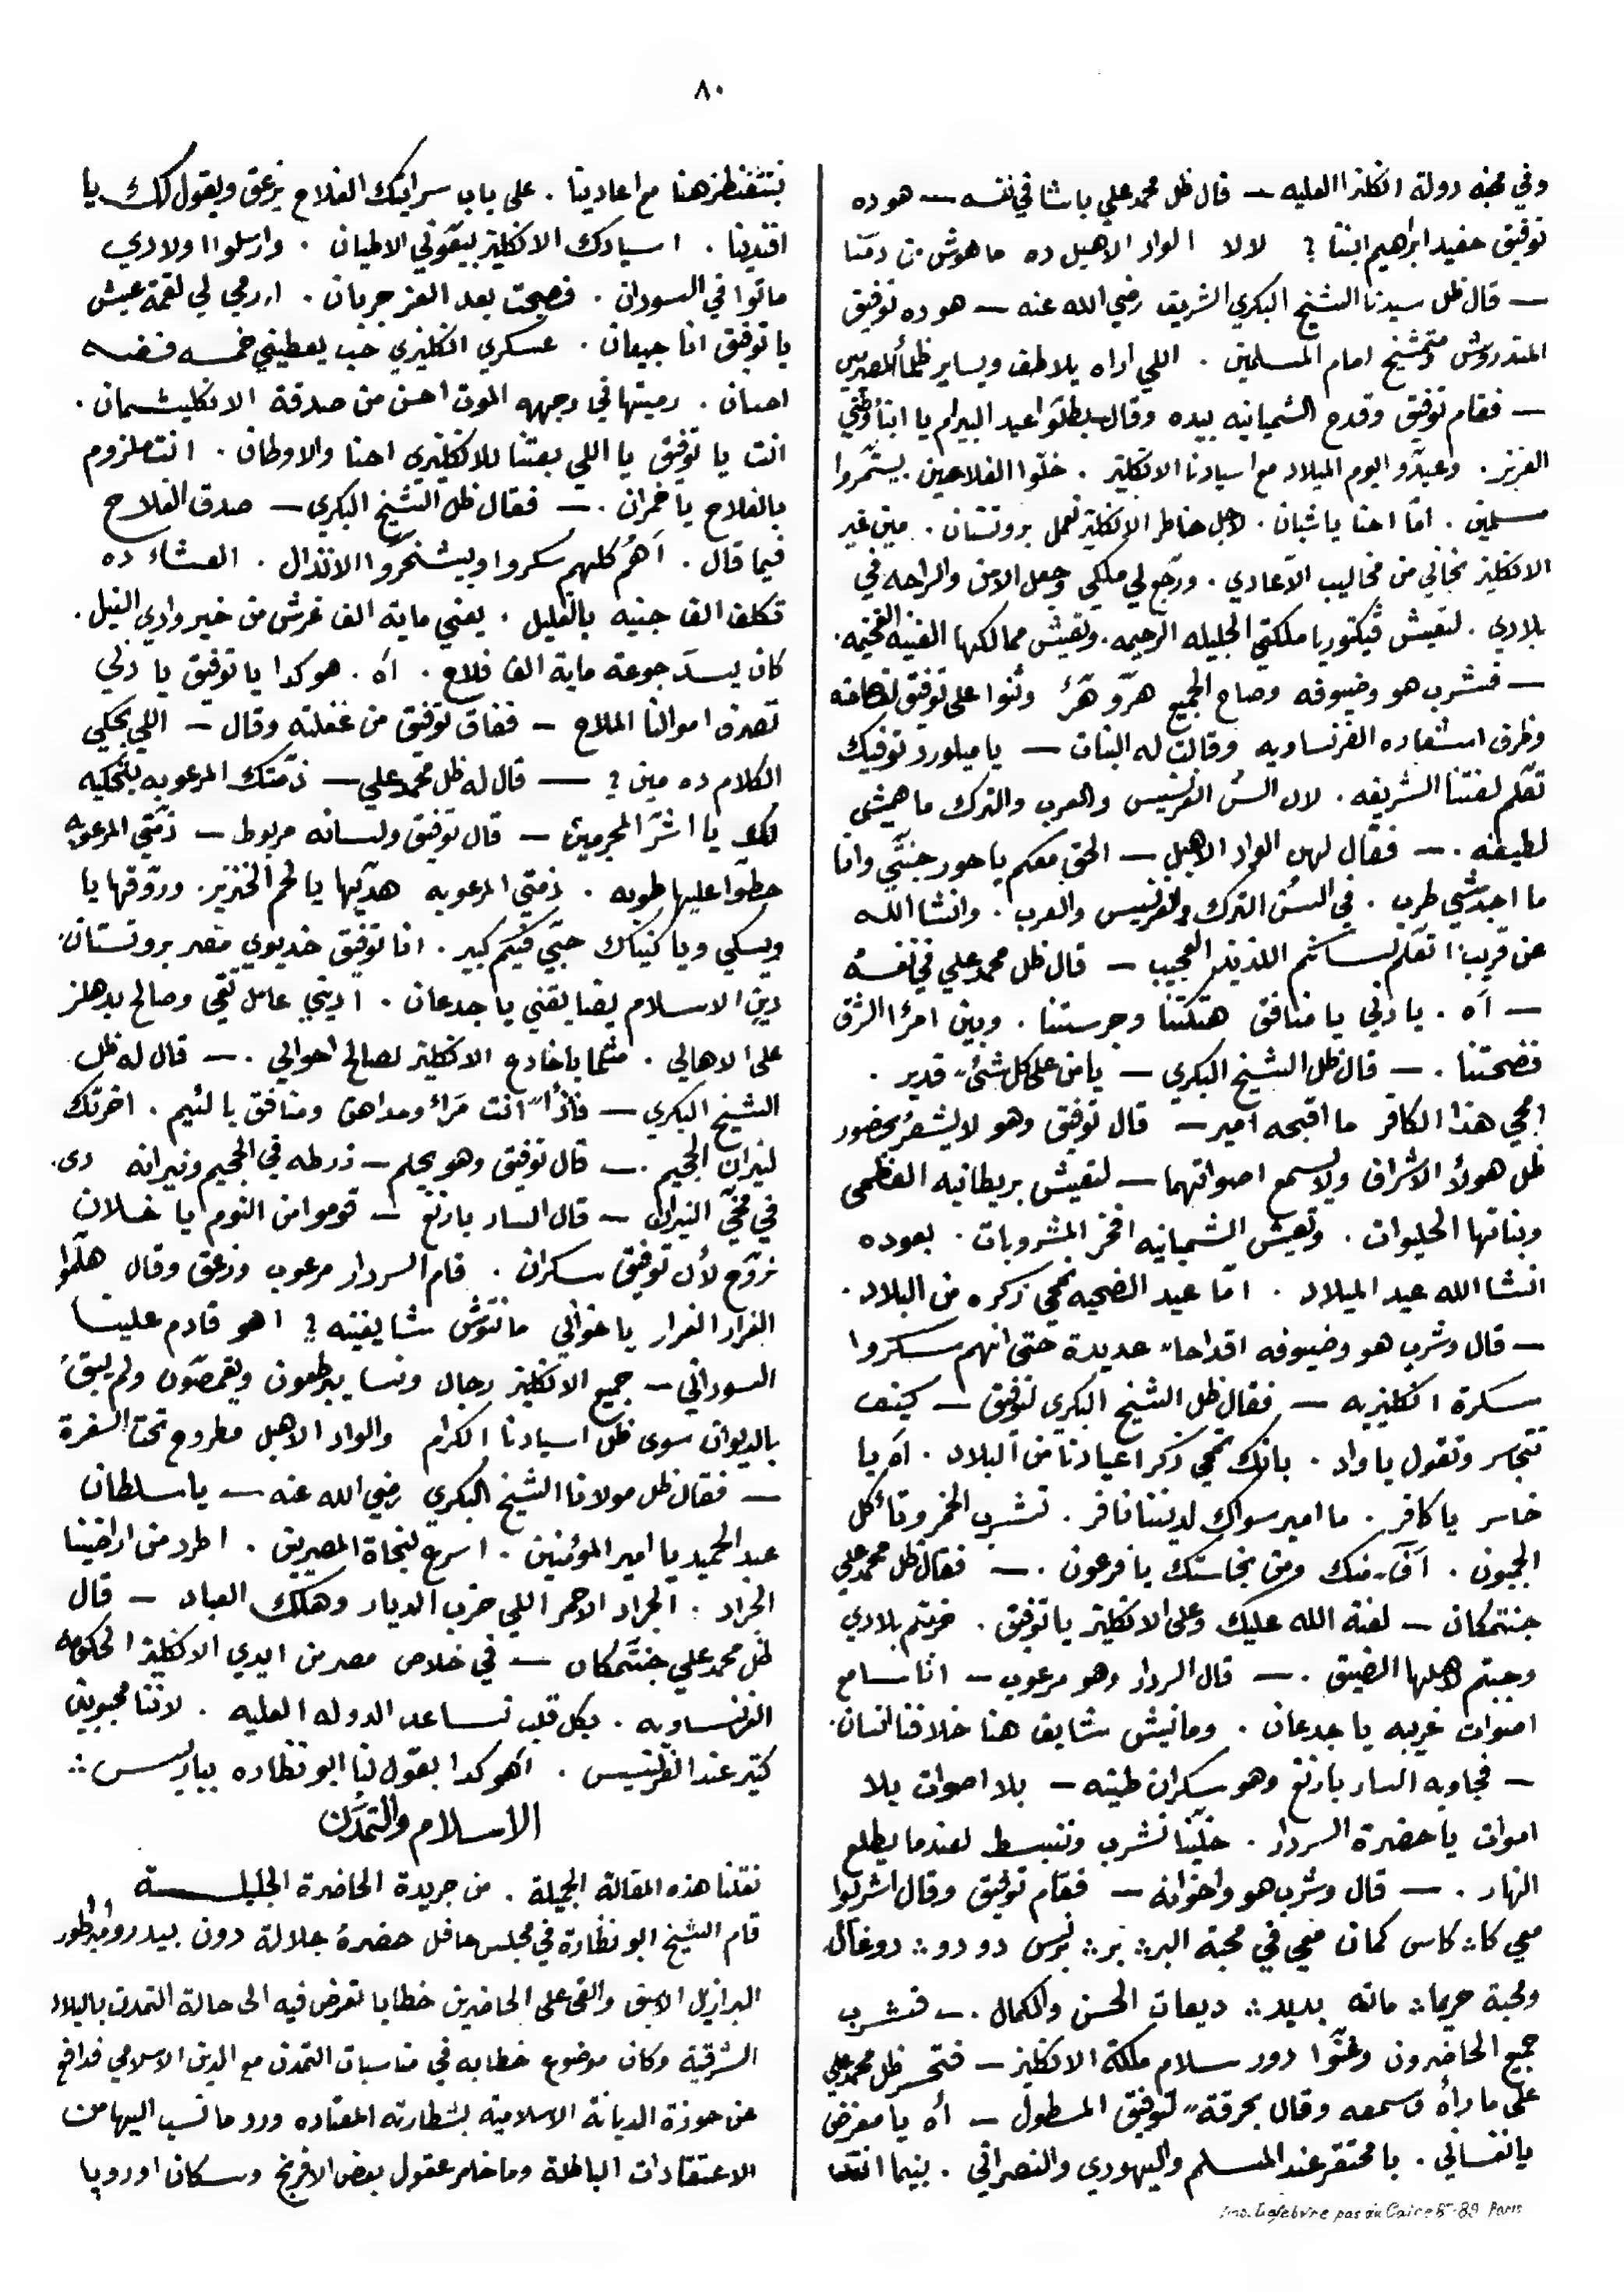 ٨٠
وفي محبة دولة انكلترا العليه — قال ظل محمد علي باشا في نفسه — هو ده
توفيق حفيد ابراهيم ابننا ؟ لا لا الواد الاهبل ده ما هوش من دمنا
— قال ظل سيدنا الشيخ البكري الشريف رضي الله عنه — هو ده توفيق
المتدروش ومتمشيخ امام المسلمين . اللي اراه يلاطف ويساير
— فقام توفيق وقدح الشمبانيه بيده وقال بطلوا عيد البيرام يا ابناء وطني
العزيز . وعيدوا يوم الميلاد مع اسيادنا الانكليز . خلوا الفلاحين يستمروا
مسلمين . اما احنا يا شبان . لاجل خاطر الانكليز نعمل بروتستان . مين غير
الانكليز نجاني من مخاليب الاعادي . ورجع لي ملكي وجعل الامن والراحه في
بلادي . لتعيش ڤيكتوريا ملكتي الجليله الرحيمه . وتعيش ممالكها الغنيه الفخيمه .
— فشرب هو وضيوفه وصاح الجميع هرّو هرّ واثنوا على توفيق لفصاحته
وظرف اشعاره الفرنساويه وقالت له البنات — يا ميلورد توفيك
تعلم لغتنا الشريفه . لان السن الفرنسيس والعرب والترك ما هيشي
لطيفه . — فقال لهن الواد الاهبل — الحق معكم يا حور جنتي وانا
ما اجدشي طرب . في السن الترك والفرنسيس والعرب . وانشا الله
عن قريب اتعلم لسانكم اللذيذ العجيب — قال ظل محمد علي في نفسه
— آه . يا دني يا منافق هتكتنا وجرستنا . وبين امراء الشرق
فضحتنا . — قال ظل الشيخ البكري — يا من على كل شئ قدير .
امحي هذا الكافر ما اقبحه امير — قال توفيق وهو لا يشعر بحضور
ظل هولاء الاشراف ولا يسمع اصواتهما — لتعيش بريطانيه العظمى
وبناتها الحليوات . وتعيش الشمبانيه افخر المشروبات . بعوده
انشا الله عيد الميلاد . اما عيد الضحيه نمحي ذكره من البلاد .
— قال وشرب هو وضيوفه اقداحاً عديدة حتى انهم سكروا
سكرة انكليزيه — فقال ظل الشيخ البكري لتوفيق — كيف
تتجاسر وتقول يا واد . بانك تمحي ذكر اعيادنا من البلاد . آه يا
خاسر يا كافر . ما امير سواك لديننا نافر . تشرب الخمر وتأكل
الجبون . آف منك ومن نجاستك يا فرعون . — فقال ظل محمد علي
جنتمكان — لعنة الله عليك وعلى الانكليز يا توفيق . خربتم بلادي
وجبتم لاهلها الضيق . — قال السردار وهو مرعوب — انا سامع
اصوات غريبه يا جدعان . ومانيش شايف هنا خلافنا انسان .
— فجاوبه السار بارنغ وهو سكران طينه — بلا اصوات بلا
اموات يا حضرة السردار . خلينا نشرب وننبسط لعندما يطلع
النهار . — قال وشرب هو واخوانه — فقام توفيق وقال اشربوا
معي كا؞ كاس كمان معي في محبة البر؞ بر؞ برنس دو دو؞ دوغال
ولمحبة حريما؞ ماته بديد؞ ديعات الحسن والكمال . — فشرب
جميع الحاضرون وغنوا دور سلام ملكة الانكليز — فتحسر ظل محمد علي
على ما رآه وسمعه وقال بحرقة لتوفيق المسطول — آه يا مغرض
يا نفساني . يا محتقر عند المسلم واليهودي والنصراني . بينما انت
بتتغنطز هنا مع اعادينا . على باب سرايتك الفلاح يزعق ويقول لك يا
افندينا . اسيادك الانكليز بيعوني الاطيان . وارسلوا اولادي
ماتوا في السودان . فصبحت بعد العز جربان . ارمي لي لقمة عيش
يا توفيق انا جيعان . عسكري انكليزي حب يعطيني خمسه فضه
احسان . رميتها في وجهه الموت احسن من صدقة الانكليشمان .
انت يا توفيق يا اللي بعتنا للانكليزي احنا والاوطان . انت ملزوم
بالفلاح يا خمران . — فقال ظل الشيخ البكري — صدق الفلاح
فيما قال . آهم كلهم سكروا وبيشخروا الانذال . العشاء ده
تكلف الف جنيه بالقليل . يعني ماية الف غرش من خير وادي النيل .
كان يسد جوعة ماية الف فلاح . آه . هو كدا يا توفيق يا دني
تصرف اموالنا الملاح — ففاق توفيق من غفلته وقال — اللي بيحكي
الكلام ده مين ؟ — قال له ظل محمد علي — ذمتك المرعوبه بتحكيه
لك يا اشر المجرمين — قال توفيق ولسانه مربوط — ذمتي المرعوبه
حطوا عليها طوبه . ذمتي المرعوبه هديها يا لحم الخنزير . وروقها يا
ويسكي ويا كنياك حبي فيكم كبير . انا توفيق خديوي مصر بروتستان
دين الاسلام بضايقني يا جدعان . اديني عامل تقي وصالح بدهلز
على الاهالي . مثما باخادع الانكليز لصالح احوالي . — قال له ظل
الشيخ البكري — فاذاً انت مراء ومداهن ومنافق يا لئيم . اخرتك
لنيران الجحيم . — قال توفيق وهو يحلم — زرطه في الجحيم ونيرانه دى
في مخي النيران — قال السار بارنغ — قوموا من النوم يا خلان
نروح لأن توفيق سكران . قام السردار مرعوب وزعق وقال هلموا
الفرار الفرار يا خواني ما نتوش شايفينه ؟ اهو قادم علينا
السوداني — جميع الانكليز رجال ونسا يبرطعون ويقمصون ولم يبق
بالديوان سوى ظل اسيادنا الكرام والواد الاهبل مطروح تحت السفرة
— فقال ظل مولانا الشيخ البكري رضي الله عنه — يا سلطان
عبد الحميد يا امير المؤمنين . اسرع لنجاة المصريين . اطرد من اراضينا
الجراد . الجراد الاحمر اللي خرب الديار وهلك العباد — قال
ظل محمد علي جنتمكان — في خلاص مصر من ايدي الانكليز الحكومه
الفرنساويه . بكل قلب تساعد الدوله العليه . لاننا محبوبين
كتير عند الفرنسيس . آهو كدا بقول لنا ابو نظاره بباريس ؞
الاسلام والتمدن
نقلنا هذه المقالة الجميلة . من جريدة الحاضرة الجليلـــة
قام الشيخ ابو نظارة في مجلس حافل حضرة جلالة دون بيدرو امبراطور
البرازيل الاسبق والقى على الحاضرين خطابا تعرض فيه الى حالة التمدن بالبلاد
الشرقية وكان موضوع خطابه في مناسبات التمدن مع الدين الاسلامي فدافع
عن حوزة الديانة الاسلامية بشطارته المعتاده ورد ما نسب اليها من
الاعتقادات الباطلة وما خامر عقول بعض الافرنج وسكان اوروپا
Imp. Lefebvre pas du Caire 87-89 Paris